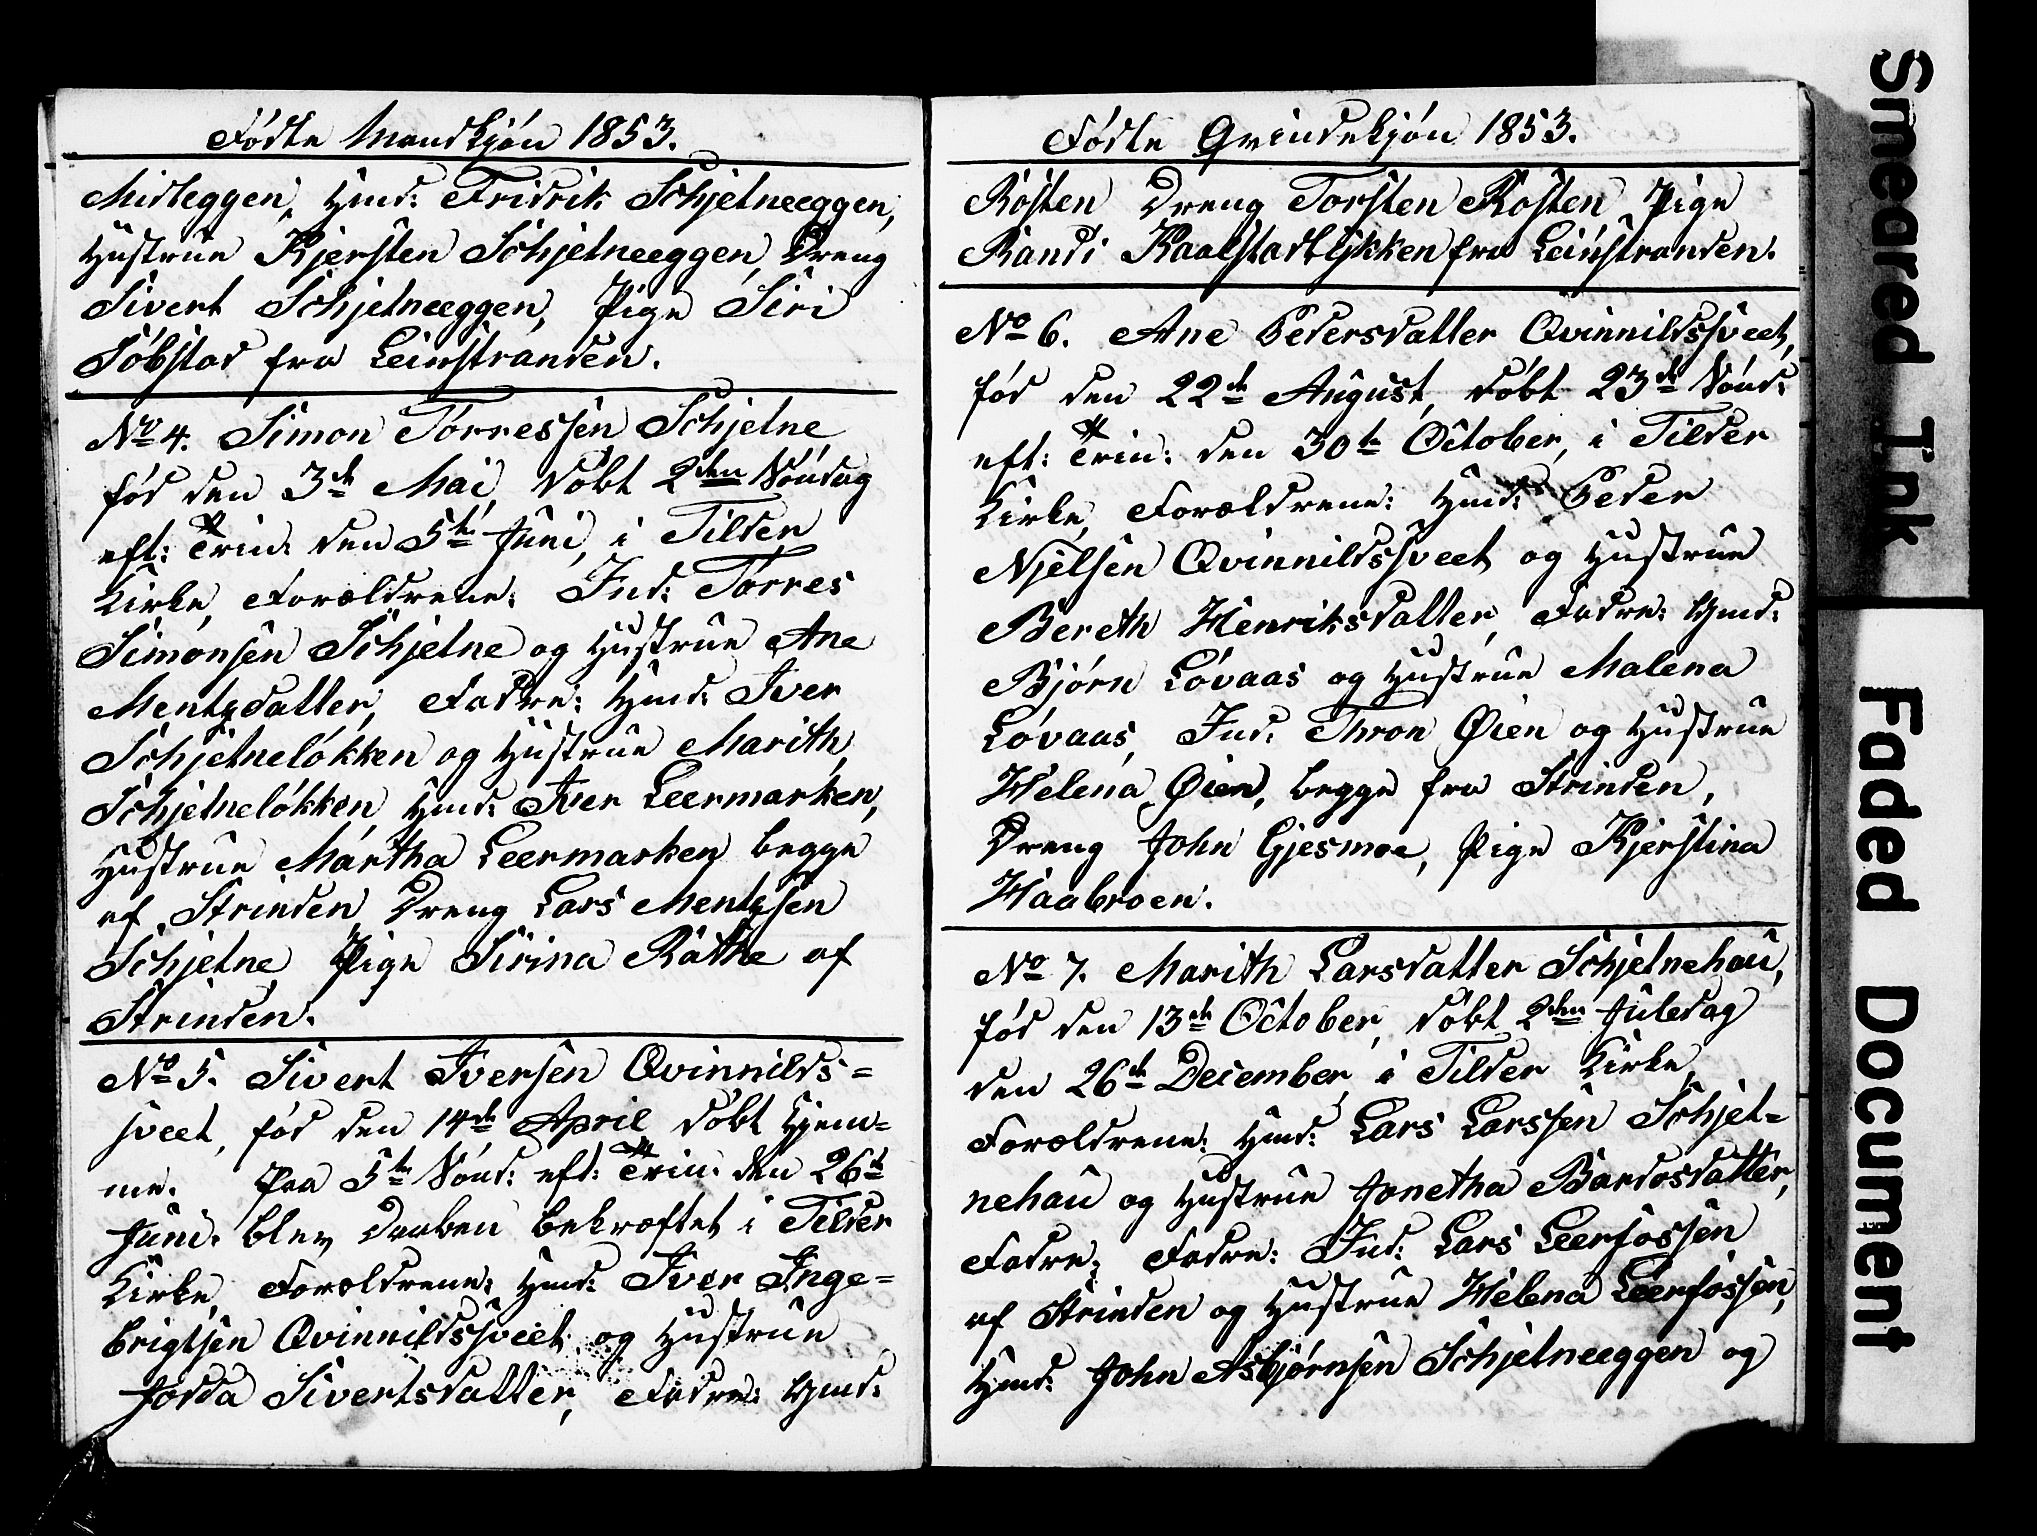 Födte Mandkjön 1853.
Midteggen, Hmd: Fridrik Schjetneeggen,
Hustrue Kjersten Schjetneeggen, Dreng
Sivert Schjetneeggen, Pige Siri
Söbstad fra Leinstranden.
No 4. Simon Torressen Schjetne
föd den 3de Mai, döbt 2den Söndag
eft: Trin: den 5te Juni, i Tilder
Kirke, Forældrene: Ind: Torres
Simonsen Schjetne og Hustrue Ane
Mentzdatter, Fadre: Hmd: Iver
Schjetnelökken og Hustrue Marith
Schjetnelökken, Hmd: Iver Leermarken,
Hustrue Martha Leermarken begge
af Strinden, Dreng Lars Mentzsen
Schjetne, Pige Sirina Rathe af
Strinden.
No 5. Sivert Iversen Qvinnilds=
sveet, föd den 14de April döbt Hjem=
me. Paa 5te Sönd: eft: Trin: den 26de
Juni. blev Daaben bekræftet i Tilder
Kirke, Forældrene: Hmd: Iver Inge=
brigtsen Qvinnildssveet og Hustrue
Jodda Sivertsdatter, Fadre: Gmd:
Födte Qvindekjön 1853.
Rosten Dreng Torsten Rosten Pige
Randi Kaalstadlykken fra Leinstranden.
No 6. Ane Pedersdatter Qvinnildssveet,
föd den 22de August, döbt 23de Sönd:
eft: Trin: den 30te October, i Tilder
Kirke, Forældrene: Hmd: Peder
Njelsen Qvinnildssveet og Hustrue
Bereth Henriksdatter, Fadre: Gmd:
Björn Lövaas og Hustrue Malena
Lövaas, Ind: Thron Øien og Hustrue
Helena Øien, begge fra Strinden,
Dreng John Gjesmoe, Pige Kjerstina
Haabroen.
No 7. Marith Larsdatter Schjetnehau,
föd den 13de October, döbt 2den Juledag
den 26de December, i Tilder Kirke,
Forældrene: Hmd: Lars Larssen Schjet=
nehau og Hustrue Jonetha Bardosdatter,
Fadre: Fadre: Ind: Lars Leerfossen
af Strinden og Hustrue Helena Leerfossen,
Hmd: John Asbjørnsen Schjetneeggen og
Smeared Ink
Faded Document